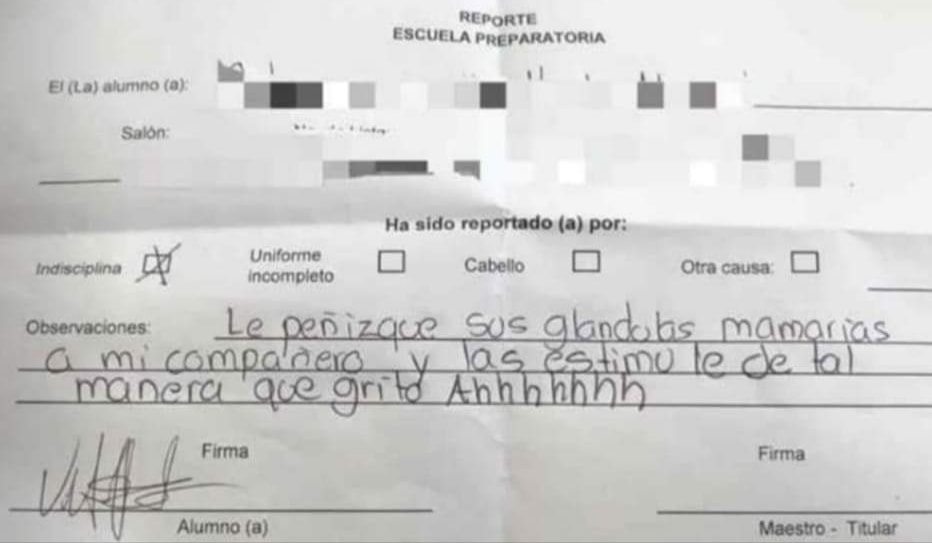 REPORTE
ESCUELA PREPARATORIA
El (La) alumno (a):
Salón:
Ha sido reportado (a) por:
Indisciplina Uniforme incompleto Cabello Otra causa:
Observaciones: Le peñizque sus glandolas mamarias
a mi compañero y las estimule de tal
manera que gritó Ahhhhhhh
Firma Firma
Alumno (a) Maestro - Titular